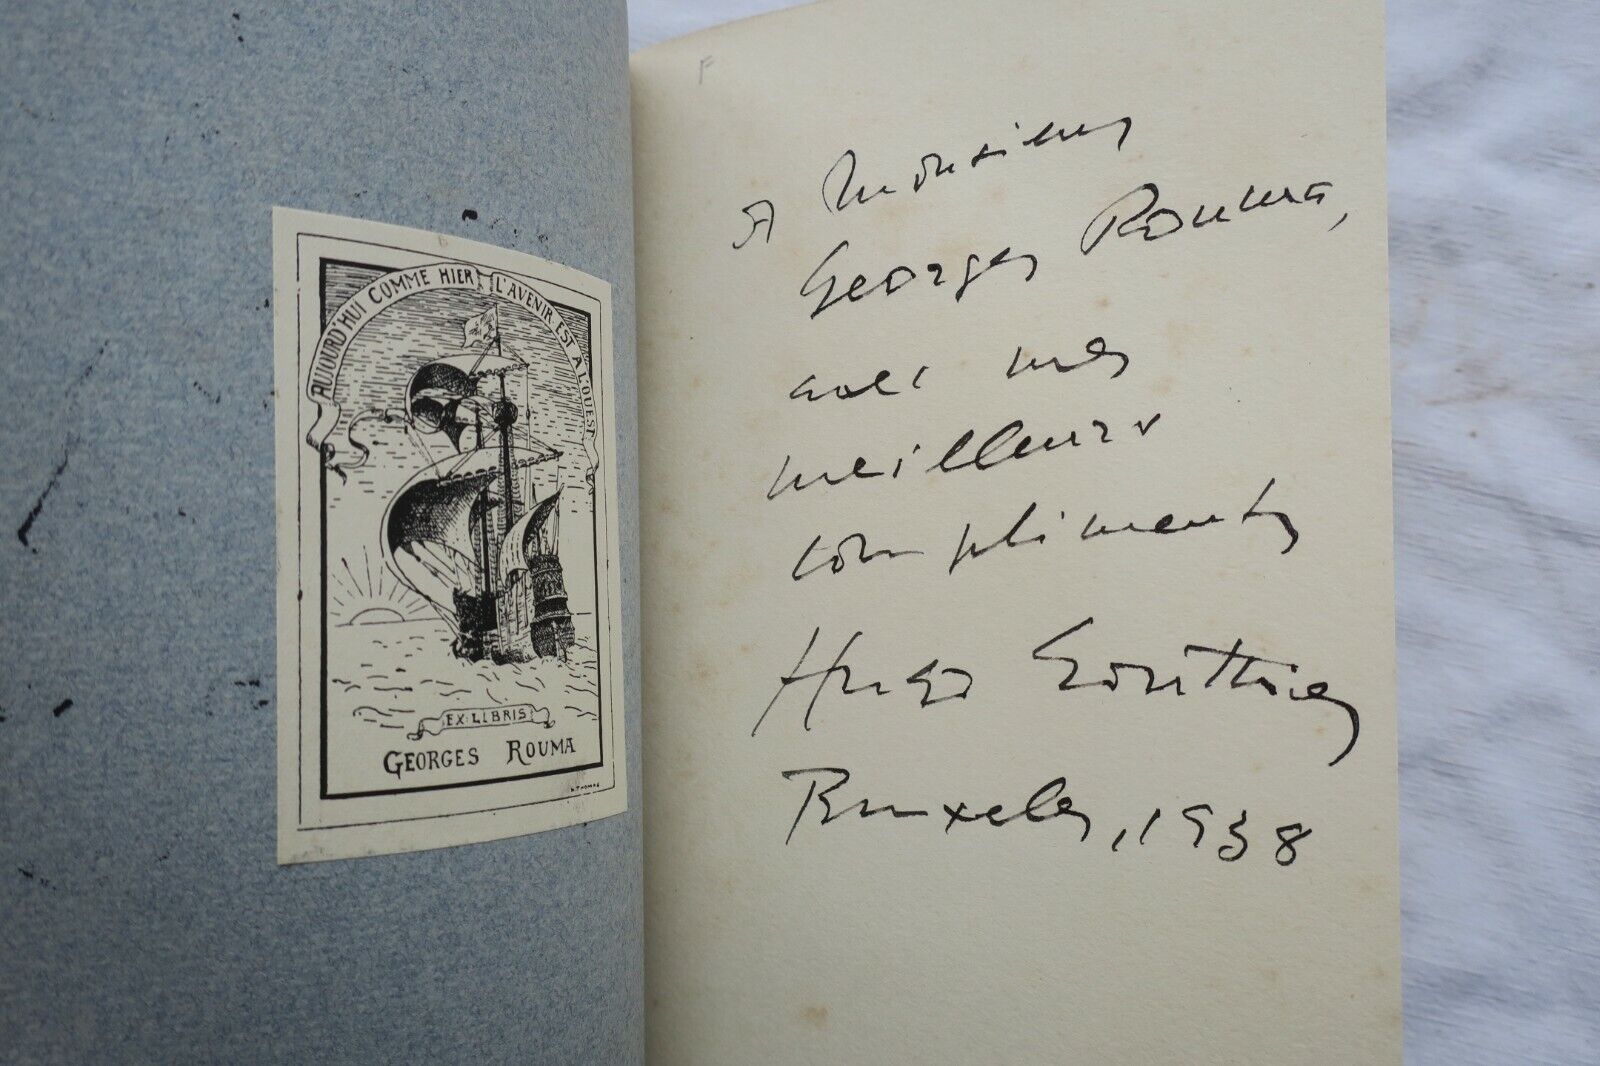 AUJOURD'HUI COMME HIER L'AVENIR EST A L'OUEST
EX-LIBRIS
GEORGES ROUMA
F
A Monsieur
Georges Rouma,
avec mes
meilleurs
compliments
Hugo
Bruxelles, 1938